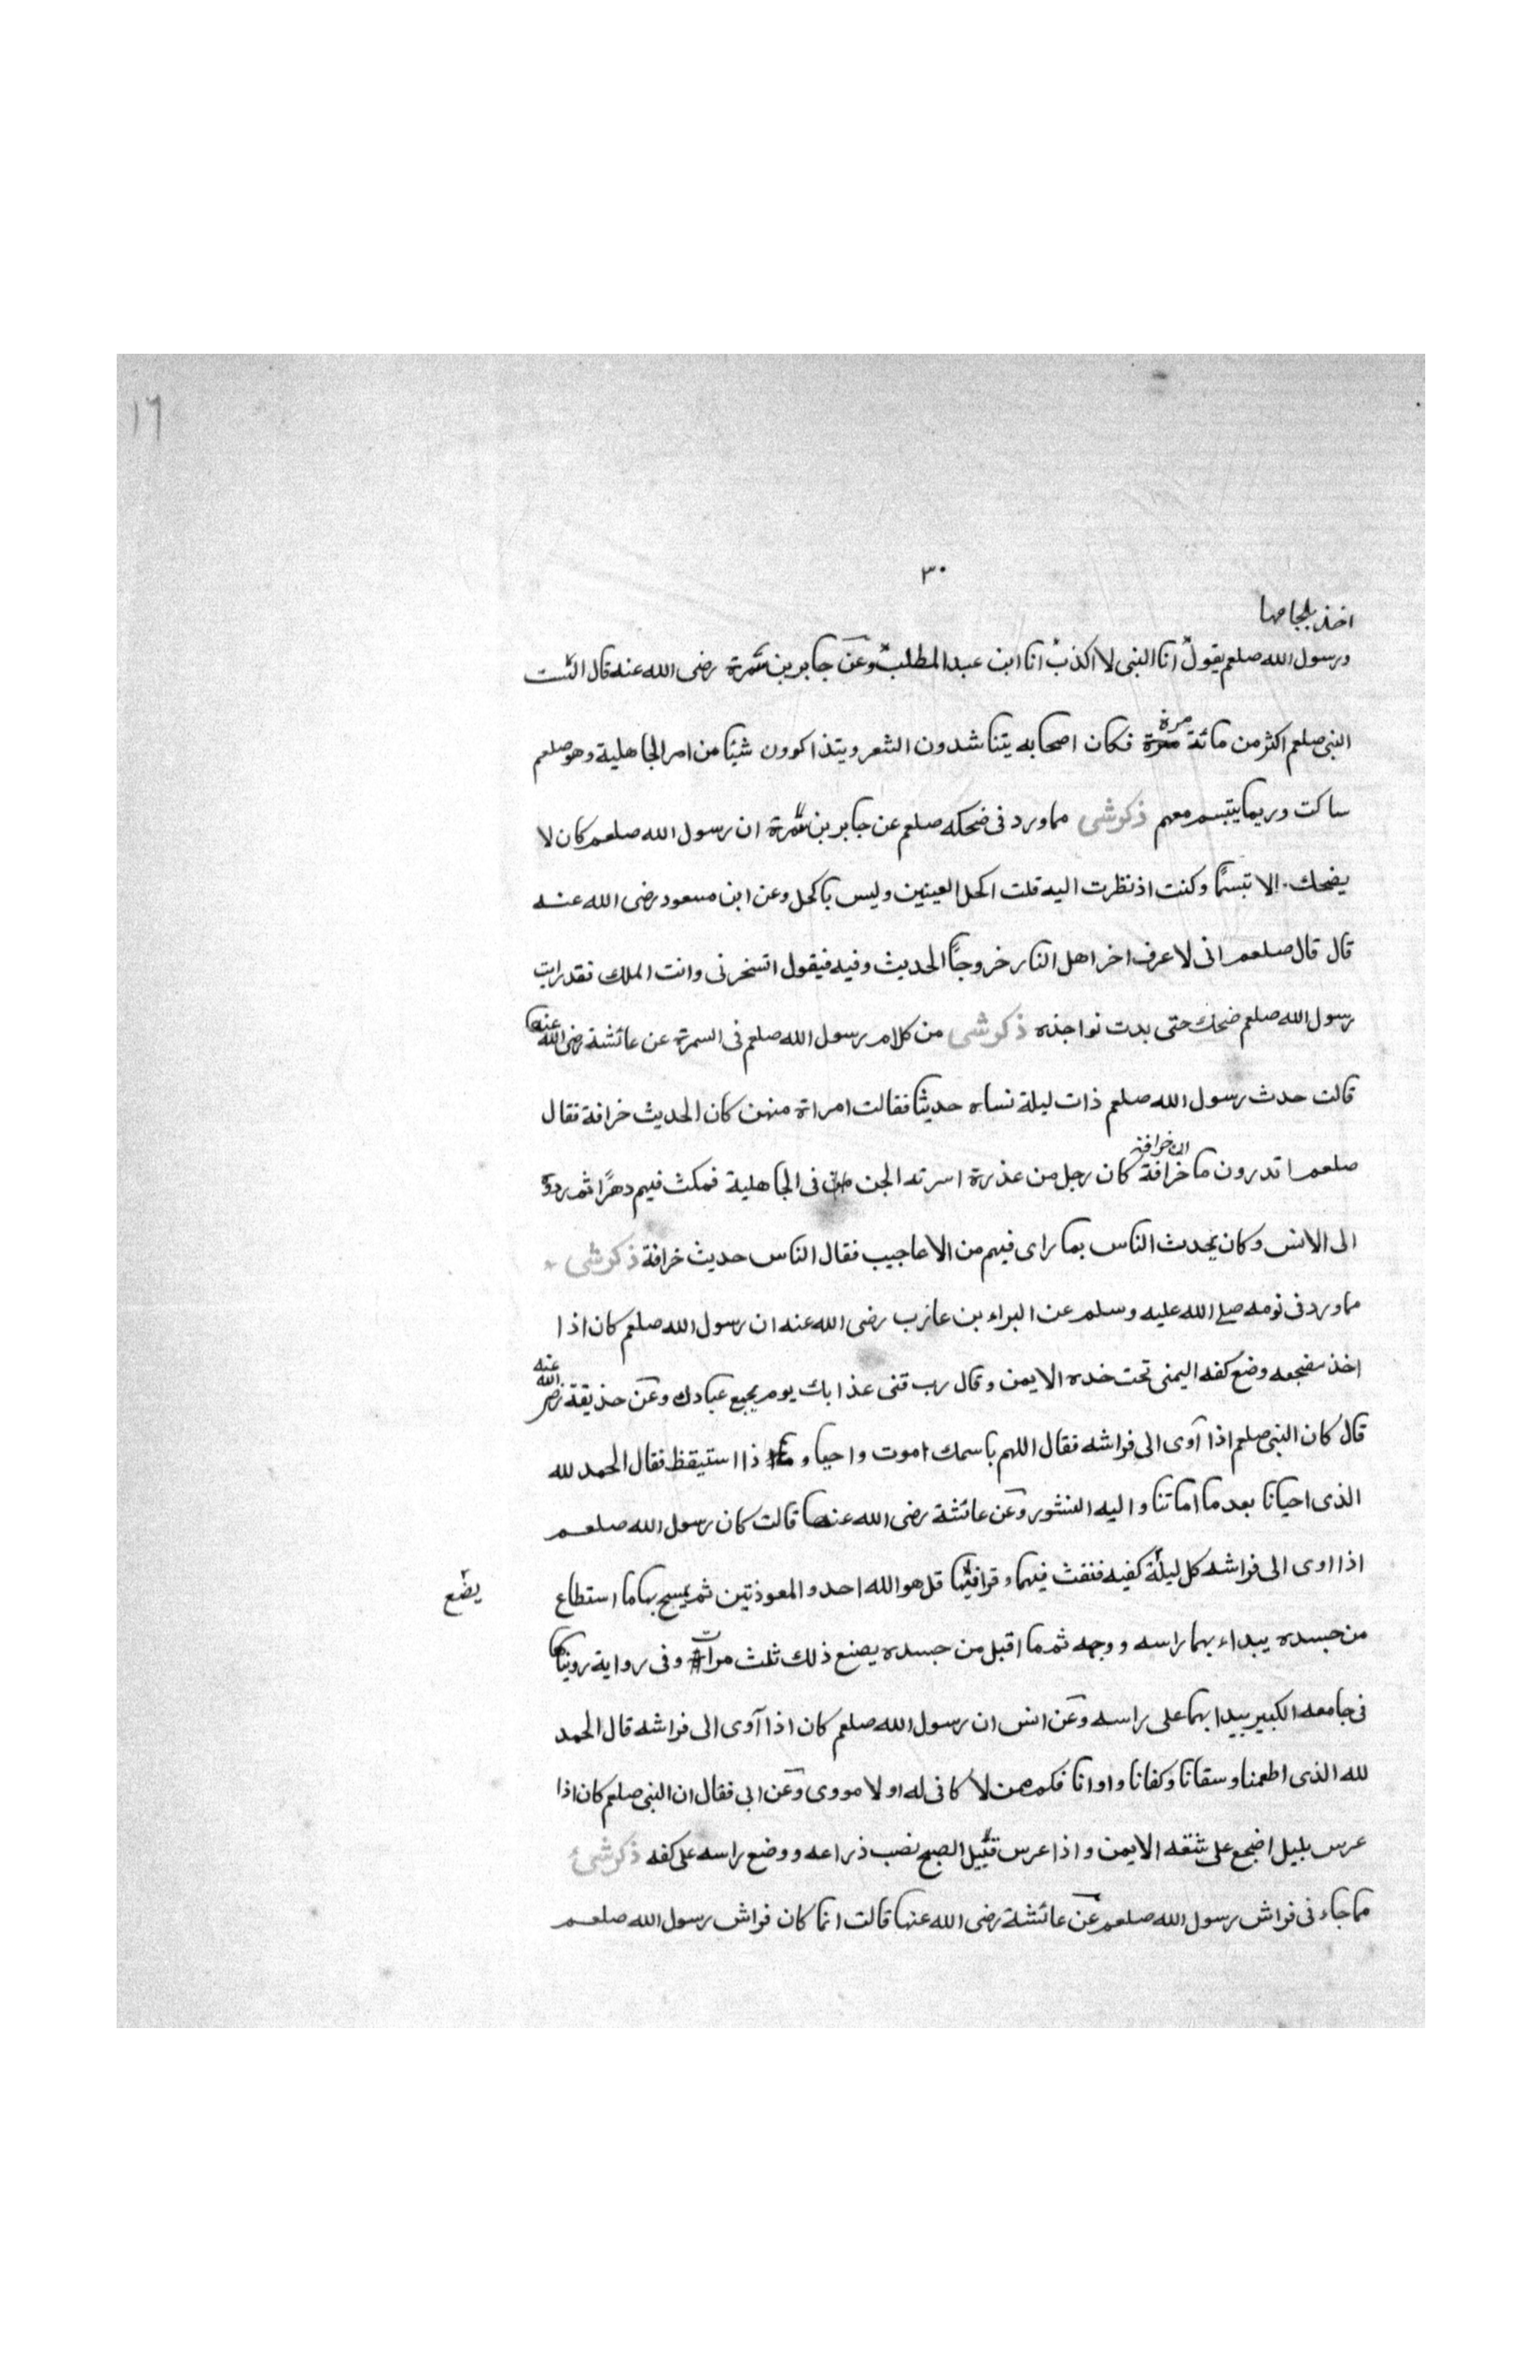 ١٦
٣٠
اخذ بلجامها
ورسول الله صلعم يقول انا النبى لا اكذب انا ابن عبد المطلب وعن جابر بن سمرة رضى الله عنه قال
النبى صلعم اكثر من مائة مرة فكان اصحابه يتناشدون الشعر ويتذاكرون شيئا من امر الجاهلية وهو صلعم
ساكت وربما يتبسم معهم ذكرشى مما ورد فى ضحكه صلعم عن جابر بن سمرة ان رسول الله صلعم كان لا
يضحك الا تبسمًا وكنت اذ نظرت اليه قلت اكحل العينين وليس باكحل وعن ابن مسعود رضى الله عنه
قال قال صلعم انى لاعرف اخر اهل النار خروجًا الحديث وفيه فيقول اتسخر نى وانت الملك فقد رايت
رسول الله صلعم ضحك حتى بدت نواجذه ذكرشى من كلام رسول الله صلعم فى السمرة عن عائشة رضى الله عنها
قالت حدث رسول الله صلعم ذات ليلة نساه حديثا فقالت امراة منهن كان الحديث خرافة فقال
صلعم اتدرون ما خرافة ان خرافة كان رجل من عذرة اسرته الجن فى الجاهلية فمكث فيهم دهرًا ثم ردوه
الى الانس وكان يحدث الناس بما راى فيهم من الاعاجيب فقال الناس حديث خرافة ذكرشى
مما ورد فى نومه صلى الله عليه وسلم عن البراء بن عازب رضى الله عنه ان رسول الله صلعم كان اذا
اخذ مضجعه وضع كفه اليمنى تحت خده الايمن وقال رب قنى عذابك يوم يجمع عبادك وعن حذيفة رضى الله عنه
قال كان النبى صلعم اذا آوى الى فراشه فقال اللهم باسمك اموت واحيا و ذا استيقظ فقال الحمد لله
الذى احيانا بعد ما اماتنا واليه النشور وعن عائشة رضى الله عنها قالت كان رسول الله صلعم
اذا اوى الى فراشه كل ليلة كفيه فنفث فيهما وقرا فيهما قل هو الله احد والمعوذتين ثم يمسح بها ما استطاع
يضع
من جسده يبداء بهما راسه ووجهه ثم ما اقبل من جسده يصنع ذلك ثلث مرات وفى رواية
فى جامعه الكبير يبدا بهما على راسه وعن انس ان رسول الله صلعم كان اذا آوى الى فراشه قال الحمد
لله الذى اطعمنا وسقانا وكفانا واوانا فكم ممن لا كافى له او لا مووى وعن ابى فقال ان النبى صلعم كان اذا
عرس بليل اضجع على شقه الايمن واذا عرس قبيل الصبح نصب ذراعه ووضع راسه على كفه ذكرشى
مما جاء فى فراش رسول الله صلعم عن عائشة رضى الله عنها قالت انما كان فراش رسول الله صلعم